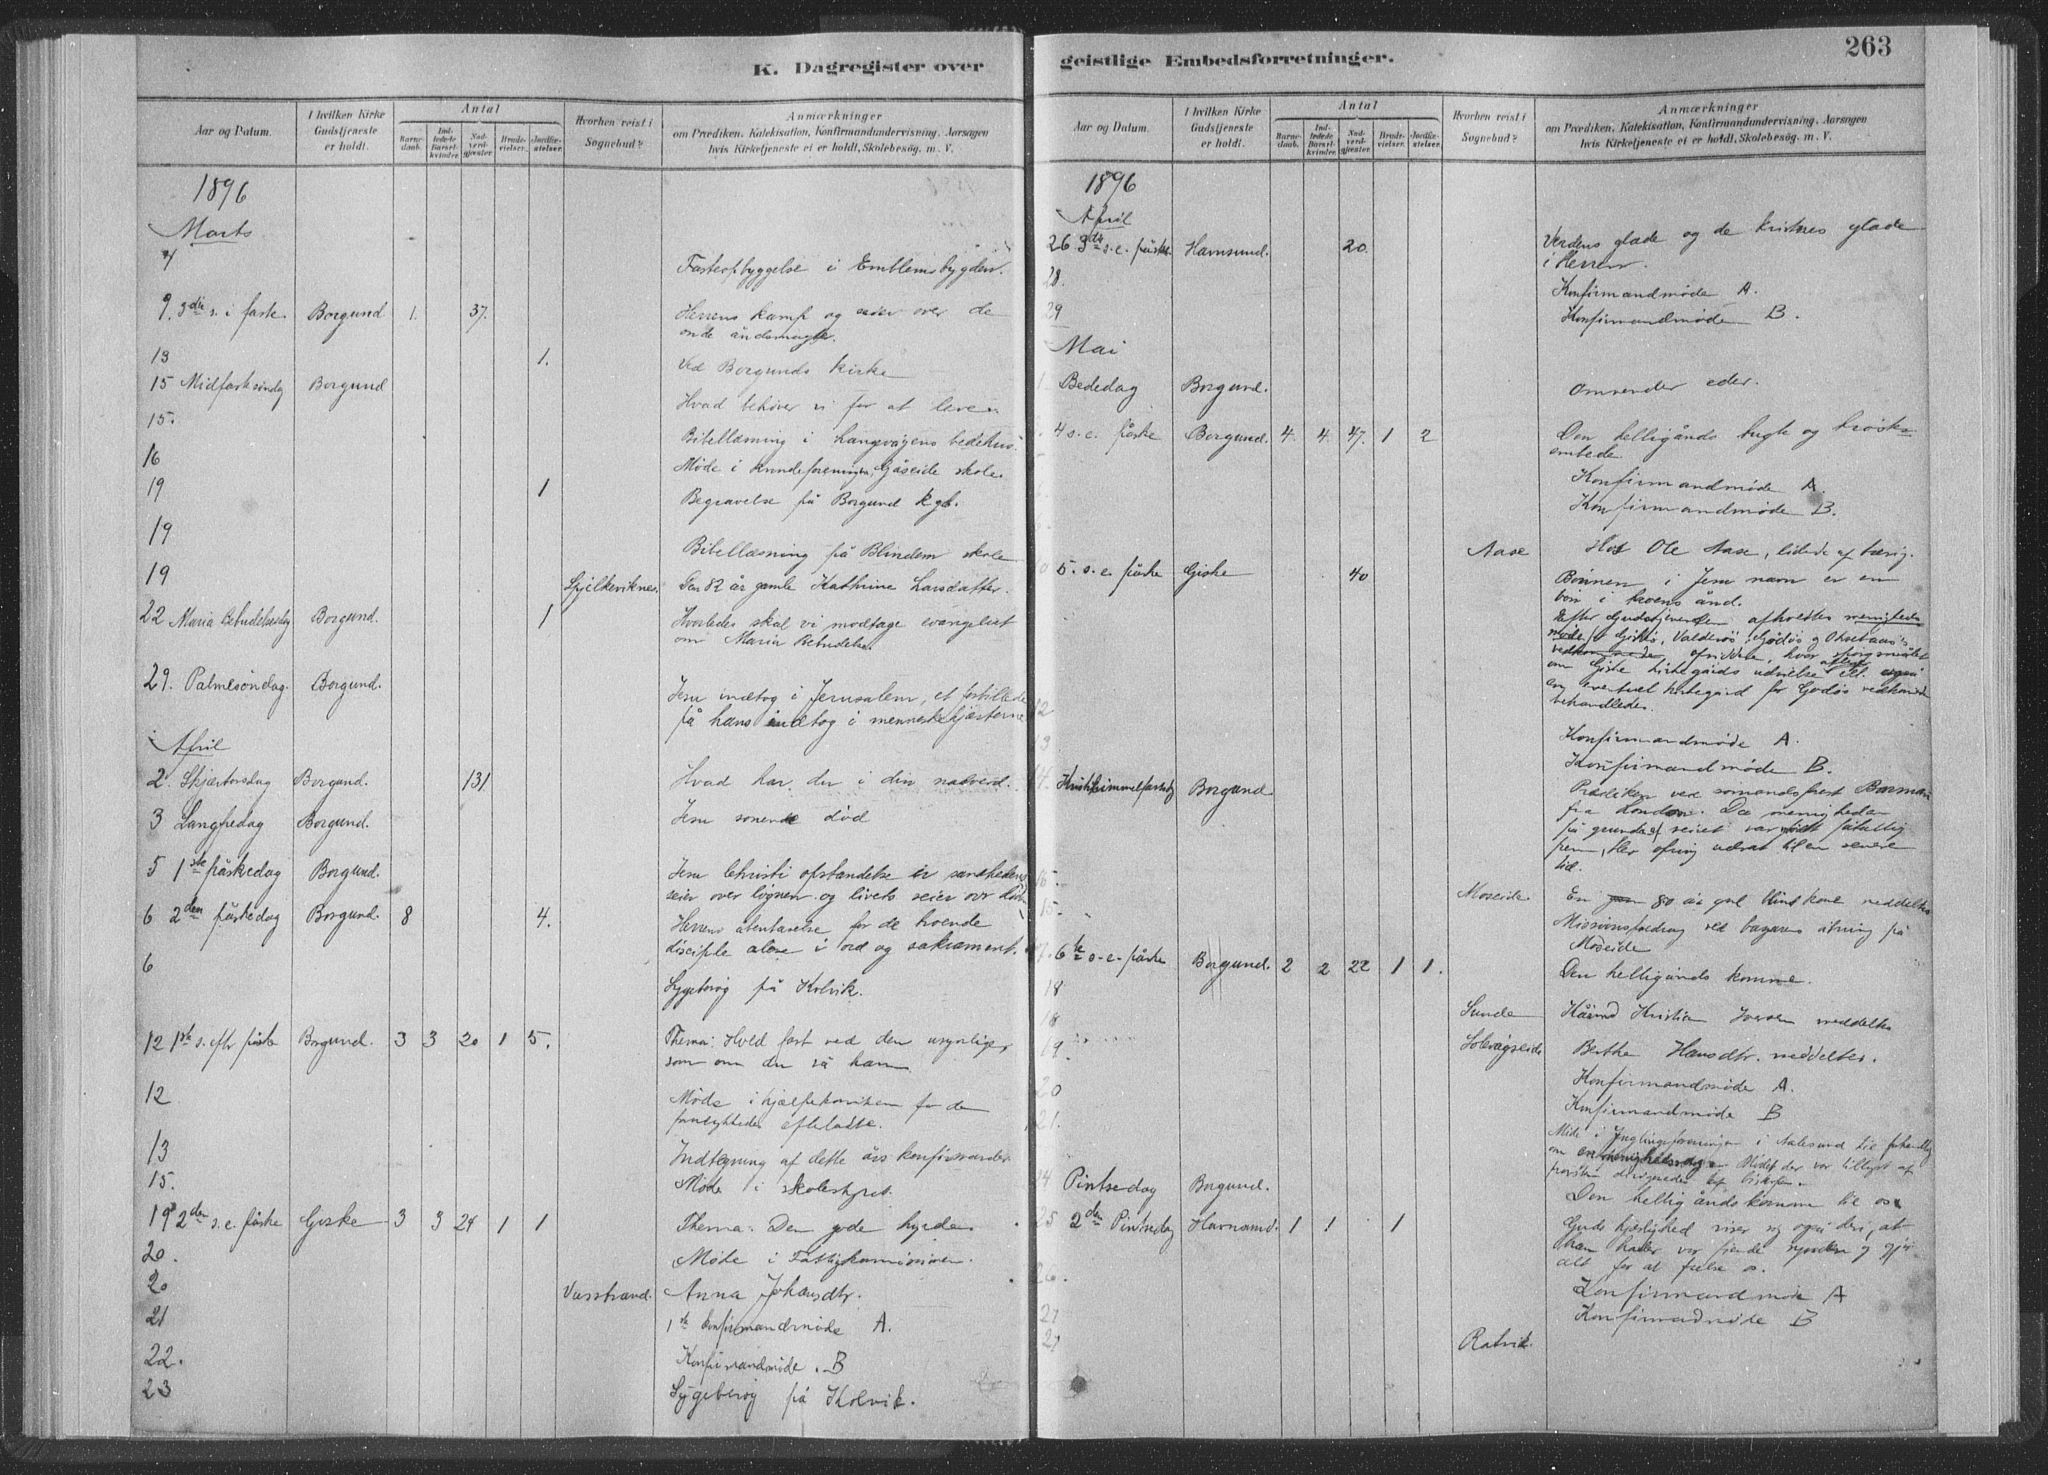 K. Dagregister over
Aar og Datum.
I hvilken Kirke Gudstjeneste er holdt.
Antal
Barnedaab.
Indledede Barselkvinder.
Nadverdgjester.
Brudevielser.
Jordfæstelser.
Hvorhen reist i Sognebud?
Anmærkninger
om Prædiken, Katekisation, Konfirmandundervisning, Aarsagen
hvis Kirketjeneste ei er holdt, Skolebesøg. m. V.
1896
Marts
Fasteopbyggelse i Emblemsbygden.
9. 3die s. i faste Borgund 1. 37. Herrens kamp og seier over de
onde åndsmagter.
13 1. Ved Borgunds kirke
15 Midfastesøndag Borgund Hvad behøver vi for at leve.
15. Bibellæsning i Langevågens bedehus.
16 Møde i Kvindeforeningen, Gåseide skole.
19 1 Begravelse på Borgund kgb.
19 Bibellæsning på Blindem skole
19 Spjelkeviknes. Den 82 år gamle Kathrine Larsdatter.
22 Maria Bebudelsesdag Borgund. 1 Hvorledes skal vi modtage evangeliet
om Maria Bebudelse.
29. Palmesøndag. Borgund. Jesu indtog i Jerusalem, et forbillede
på hans indtog i menneskehjerterne
April
2. Skjærtorsdag Borgund. 131 Hvad har du i din nadverd.
3 Langfredag Borgund. Jesu sonende død
5 1ste påskedag Borgund. Jesu Christi opstandelse er sandhedens
seier over løgnen og livets seier over døden
6 2den påskedag Borgund. 8 4. Herrens åbenbarelse for de troende
disciple alene i ord og sakrament.
6 Sygebesøg på Kolvik.
12 1ste s. eftr påske Borgund. 3 3 20 1 5. Thema: Hold fast ved den usynlige,
som om du så ham
12 Møde i hjælpekomiteen for de
forulykkedes efterladte.
13 Indtegning af dette års konfirmander
15. Møde i skolestyret.
19 2den s. e. påske Giske 3 3 24 1 1 Thema: Den gode hyrde.
20. Møde i Fattigkommissionen.
20 Vasstrand. Anna Johansdtr.
21 1ste konfirmandmøde A.
22. Konfirmandmøde. B
23 Sygebesøg på Kolvik.
263
geistlige Embedsforretninger.
Aar og Datum.
I hvilken Kirke Gudstjeneste er holdt.
Antal
Barnedaab.
Indledede Barselkvinder.
Nadverdgjester.
Brudevielser.
Jordfæstelser.
Hvorhen reist i Sognebud?
Anmærkninger
om Prædiken, Katekisation, Konfirmandundervisning, Aarsagen
hvis Kirketjeneste ei er holdt, Skolebesøg. m. V.
1896
April
26 3die s. e. påske. Havnsund. 20. Verdens glæde og de kristnes glæde
i Herren.
28. Konfirmandmøde A.
29 Konfirmandmøde B.
Mai
1 Bededag Borgund. Omvender eder.
4 s. e. påske Borgund. 4. 4. 47. 1 2 Den helligånds tugt og trøste-
embede
Konfirmandmøde A.
Konfirmandmøde B.
Aase Hos Ole Aase, lidende af tæring.
5. s. e. påske Giske 40 Bønnen i Jesu navn er en
bøn i troens ånd.
Efter Gudstjenesten afholdtes menigheds
møde
om Giske kirkegårds udvidelse
eventuel kirkegård for Godøs vedkommende
behandledes.
12
13 Konfirmandmøde A.
Konfirmandmøde B.
14. Kristi himmelfartsdag Borgund Prædiken ved sømandsprest
fra London. Da menigheden
på grund af veiret var
frem, blev ofring udsat til en senere
tid.
15.
15. Moseide En 80 år gml blind kone meddeltes
Missionsforedrag ved på
Moseide
17. 6te s. e. påske Borgund. 2 2 22 1 1. Den helligånds komme.
18
18 Sunde Kristian Iversen meddeltes
19. Solevågseide Berthe Hansdtr. meddeltes.
20 Konfirmandmøde A.
21. Konfirmandmøde B
Møde i Ynglingeforeningen i Aalesund
24 Pintsedag Borgund. Den hellig ånds komme til os
25 2den Pintsedag Havnsund. 1 1 1 Guds kjærlighed viser sig også deri, at
han hader vor fiende synden og gjør
alt for at frelse os.
26. Konfirmandmøde A
27 Konfirmandmøde B
27 Ratvik.